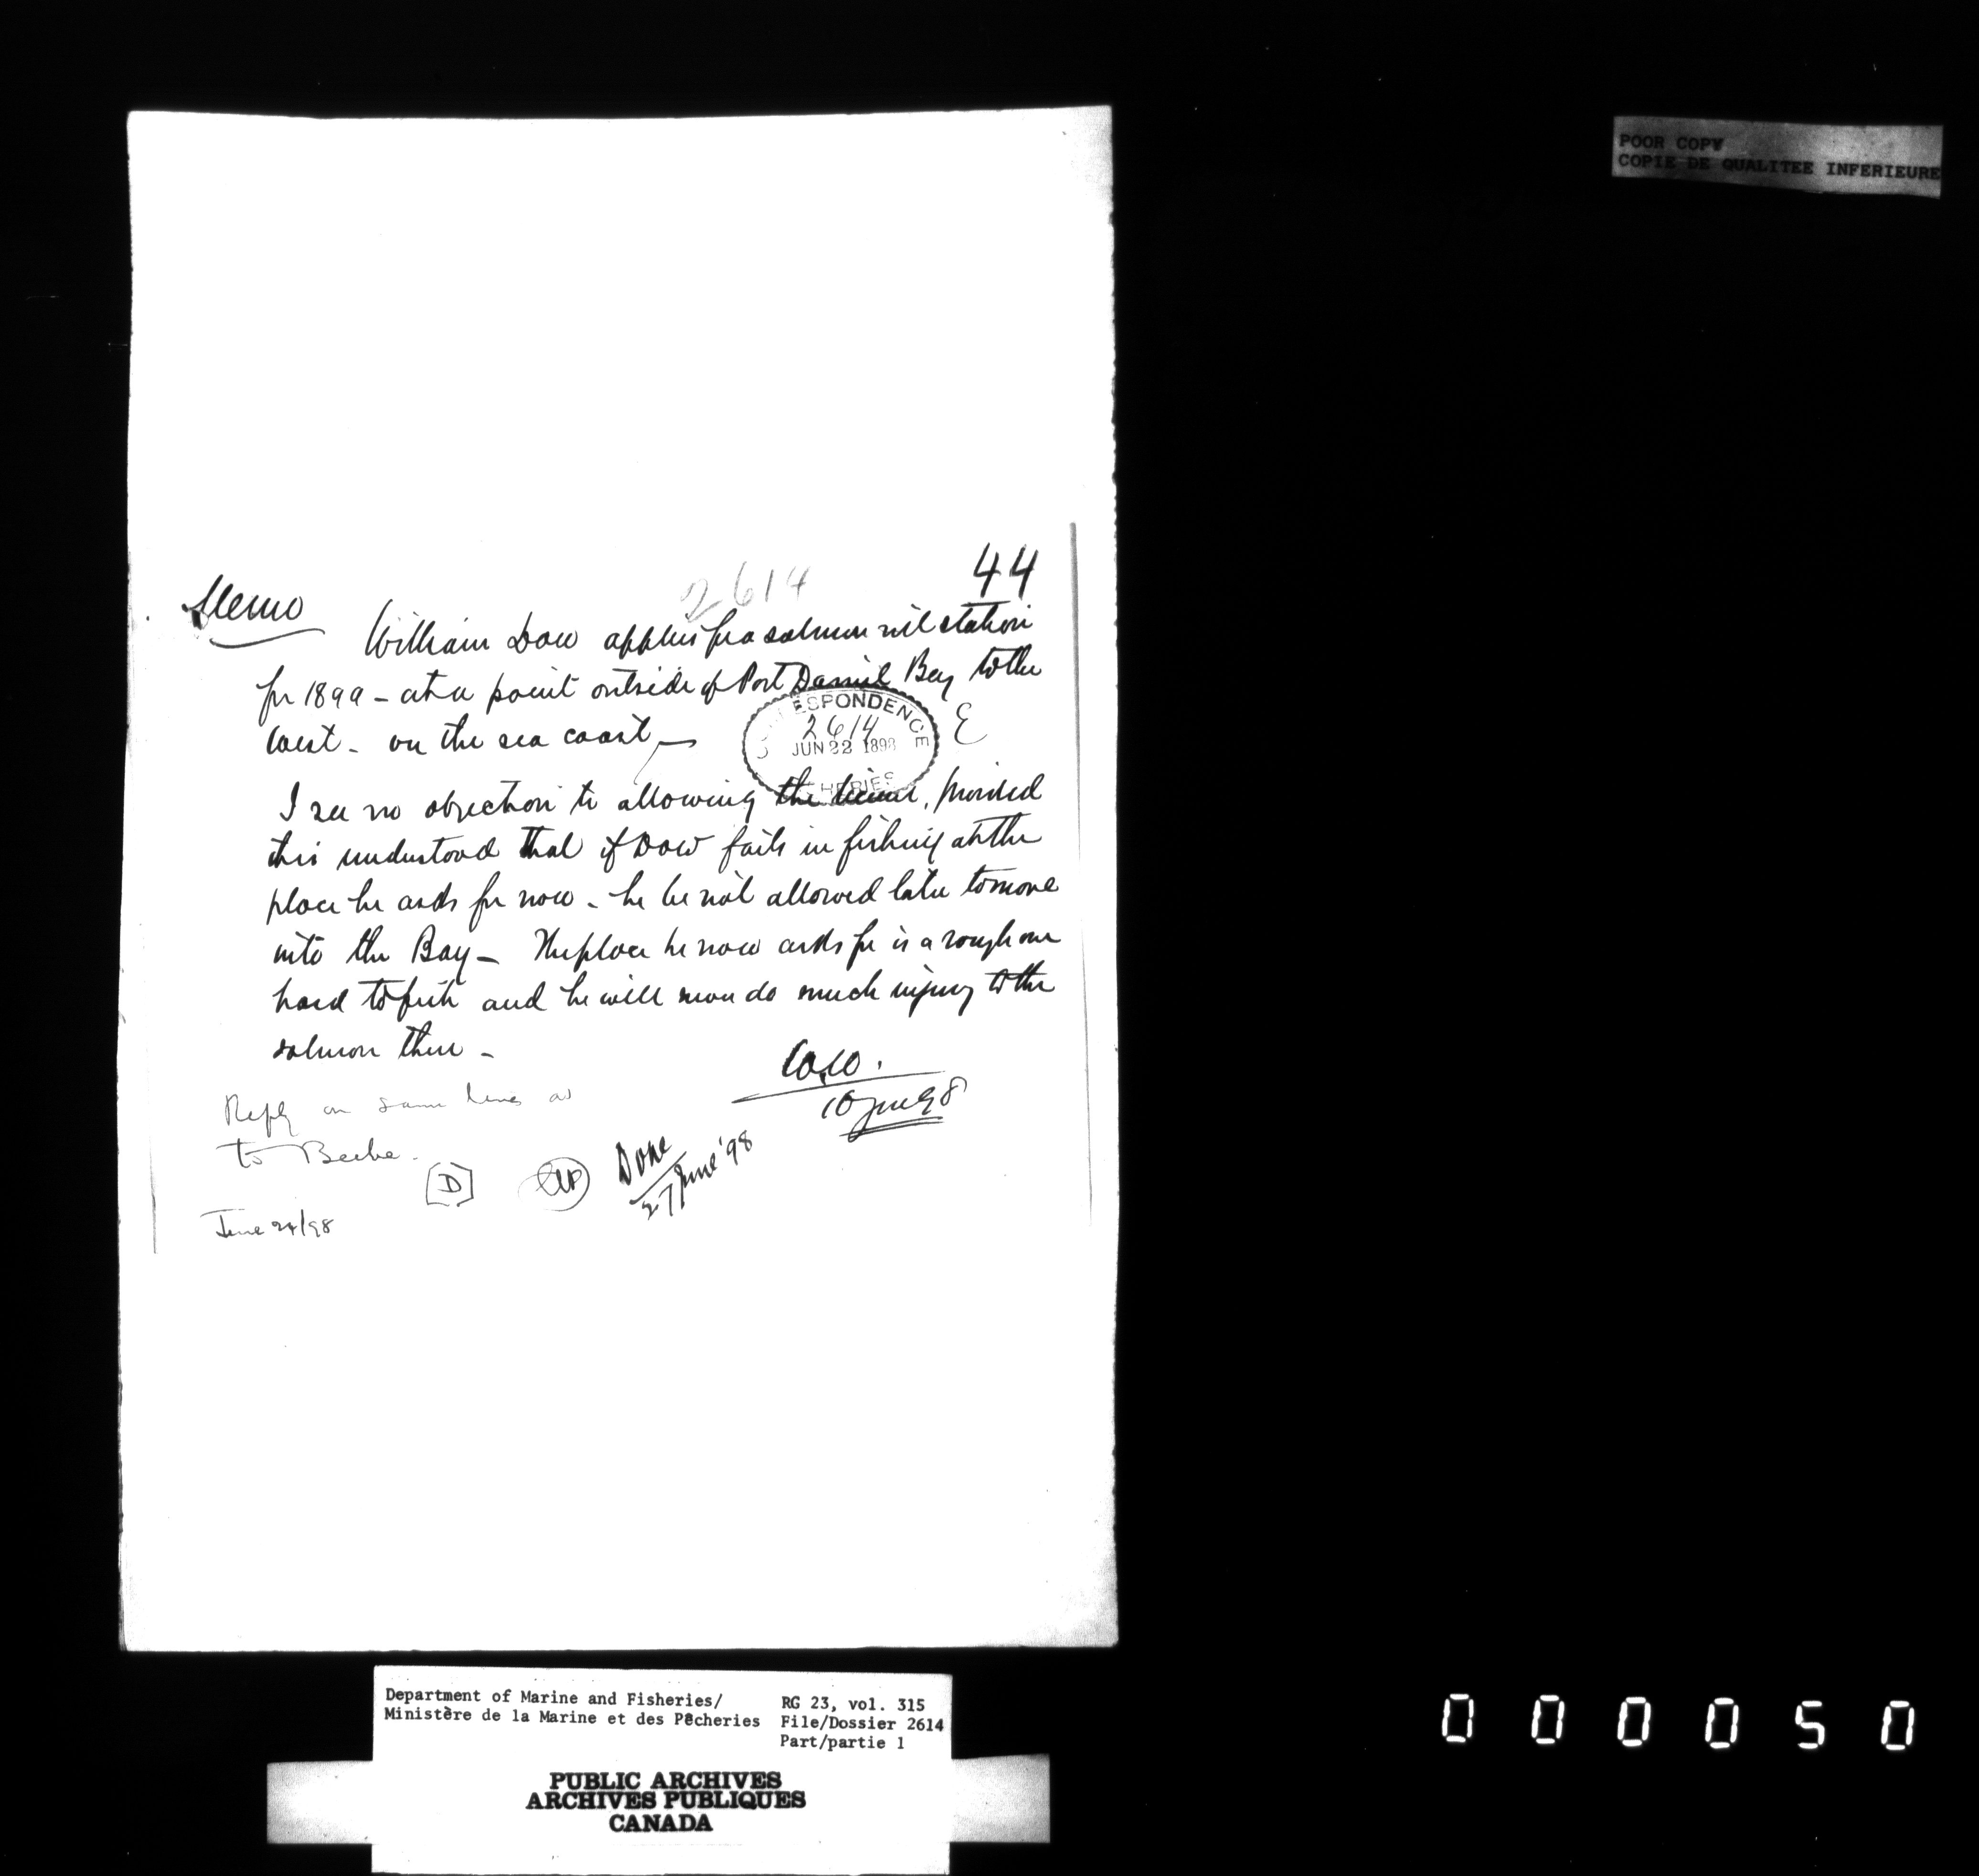 POOR COPY
COPIE DE QUALITEE INFERIEURE
44
2614
Memo
William Dow applies for a salmon net station
for 1899 - at a point outside of Port Daniel Bay to the
West - on the sea coast -
CORRESPONDENCE
2614
JUN 22 1898
FISHERIES
E
I see no objection to allowing the license, provided
it is understood that if Dow fails in fishing at the
place he asks for now - he be not allowed later to move
into the Bay - The place he now asks for is a rough one
hard to fish and he will do much injury to the
salmon there -
June 98
Reply on same lines as
to Beebe.
[D]
Done
27 June '98
June 24/98
Department of Marine and Fisheries/
Ministère de la Marine et des Pêcheries
RG 23, vol. 315
File/Dossier 2614
Part/partie 1
PUBLIC ARCHIVES
ARCHIVES PUBLIQUES
CANADA
000050